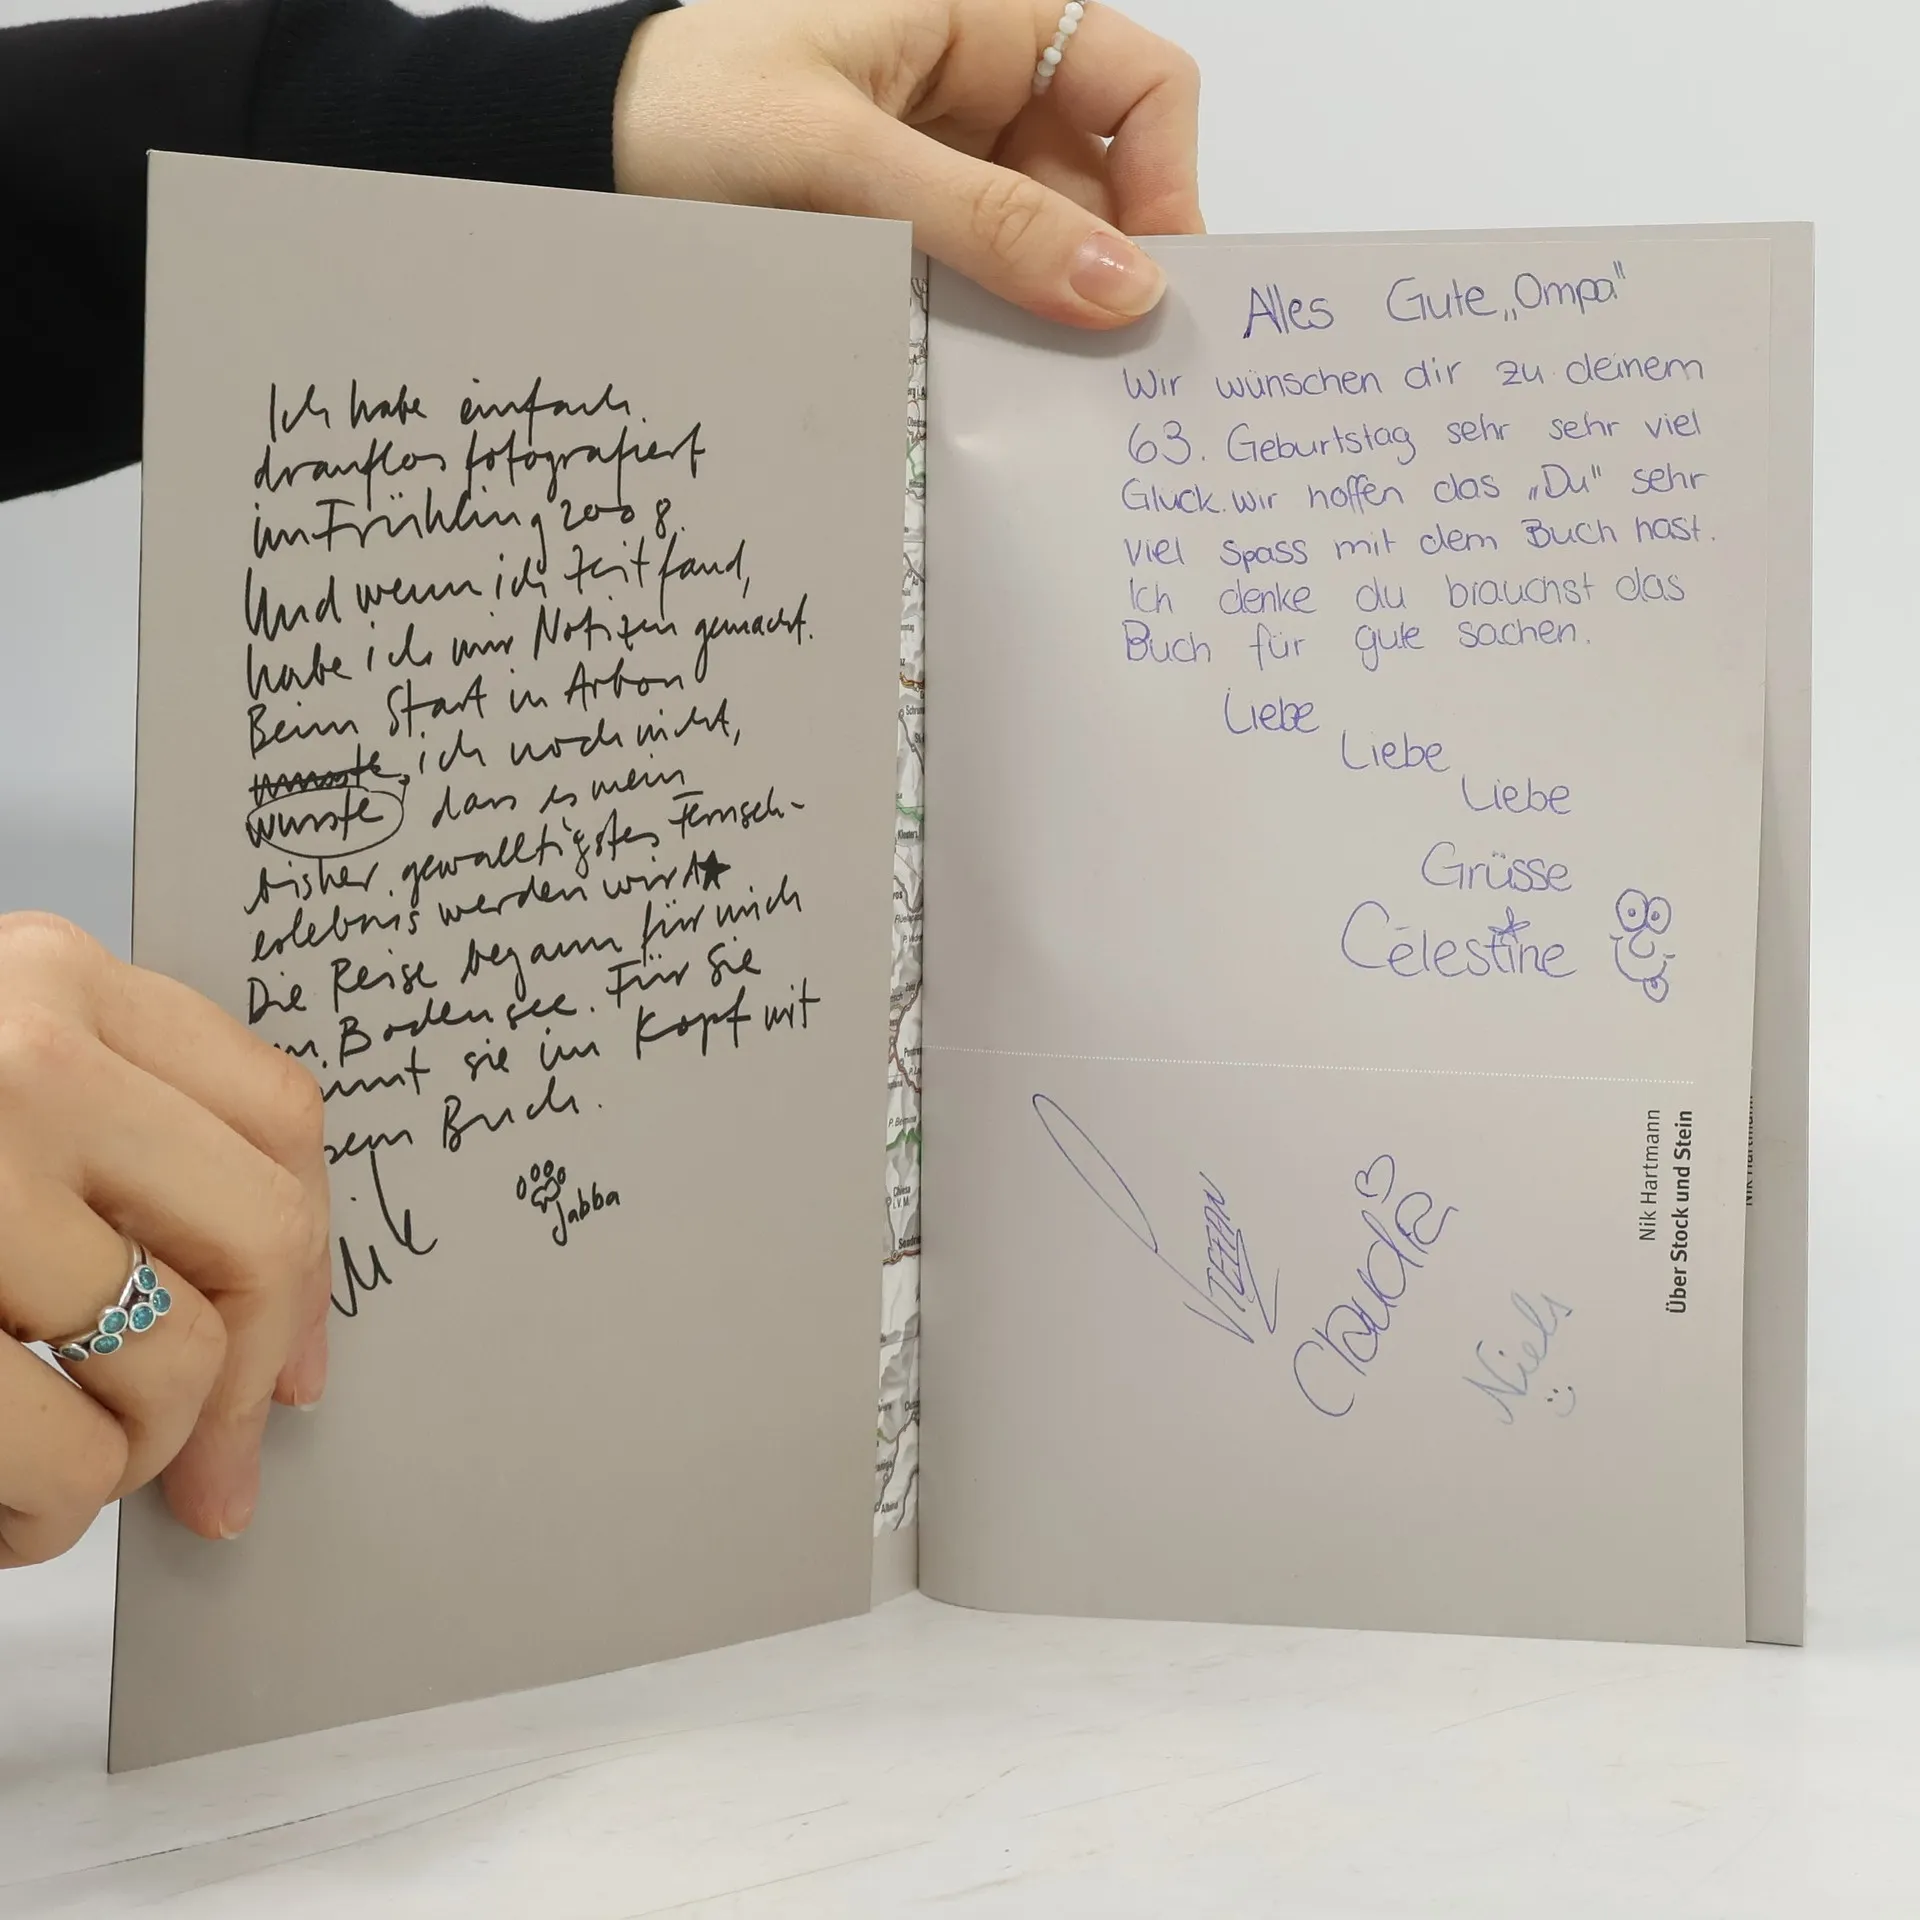 Ich habe einfach
drauflos fotografiert
im Frühling 2008.
Und wenn ich Zeit fand,
habe ich mir Notizen gemacht.
Beim Start in Arbon
wusste, ich noch nicht,
wusste dass es mein
bisher gewalltigstes Fernseh-
erlebnis werden wird
Die Reise begann für mich
am Bodensee. Für Sie
nimmt sie im Kopf mit
sem Buch.
Nik
Jabba
Alles Gute „Ompa"
Wir wünschen dir zu deinem
63. Geburtstag sehr sehr viel
Glück. wir hoffen das „Du" sehr
viel spass mit dem Buch hast.
Ich denke du brauchst das
Buch für gute sachen.
Liebe
Liebe
Liebe
Grüsse
Célestine
Claudia
Niels
Nik Hartmann
Über Stock und Stein